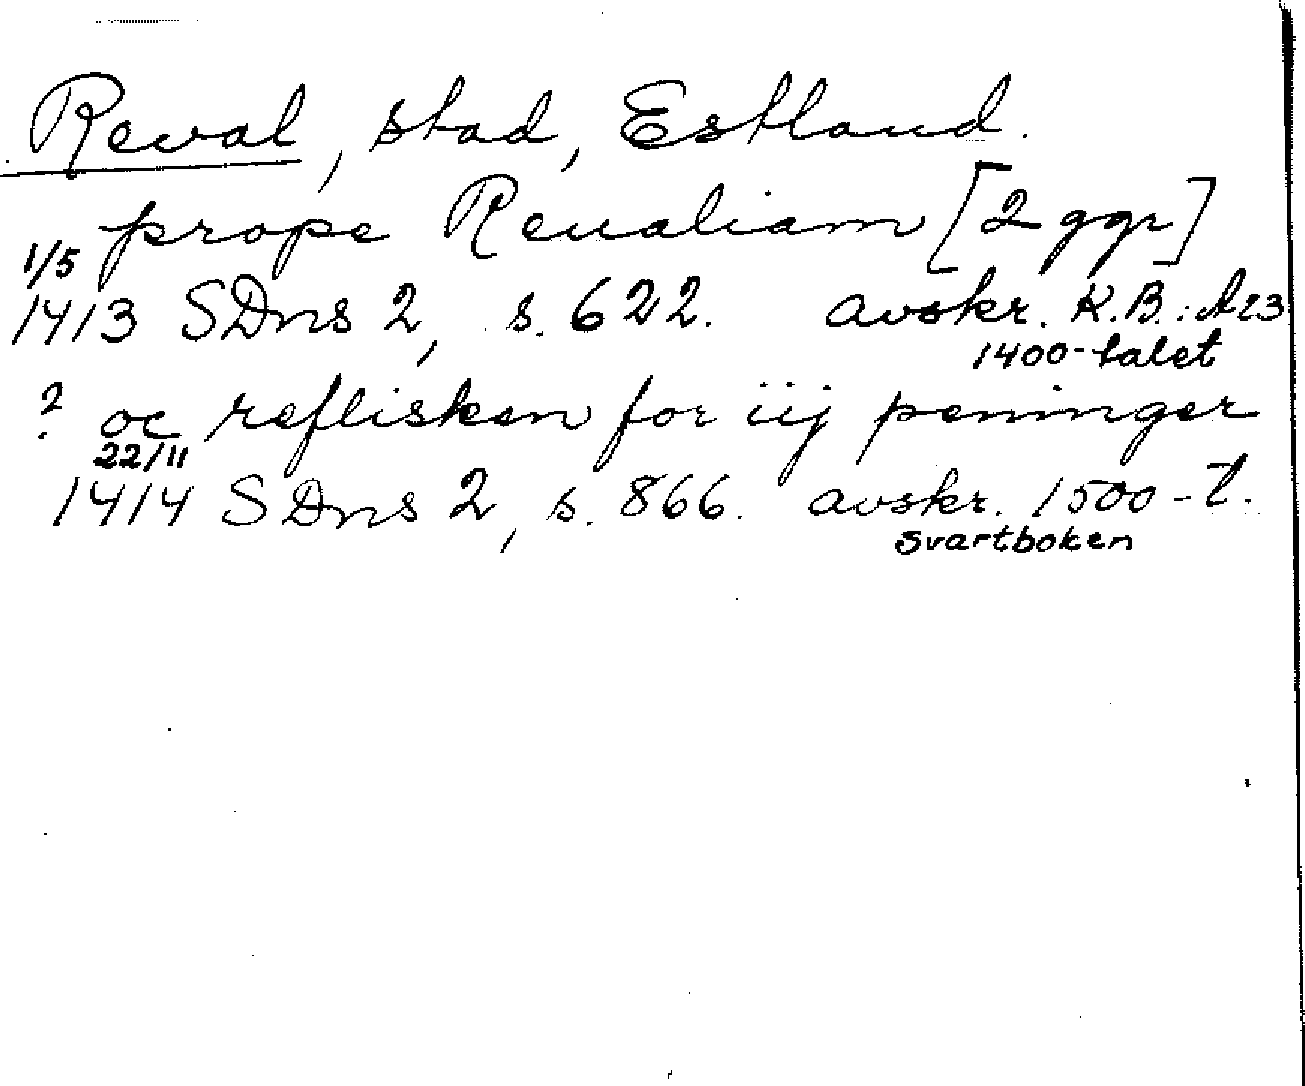 Reval, stad, Estland.
prope Reualiam [2 ggr]
1/5
1413 SDns 2, s. 622. avskr. K.B.: A 23
1400-talet
? oc reflisken for iij peninger
22/11
1414 SDns 2, s. 866. avskr. 1500-t.
svartboken